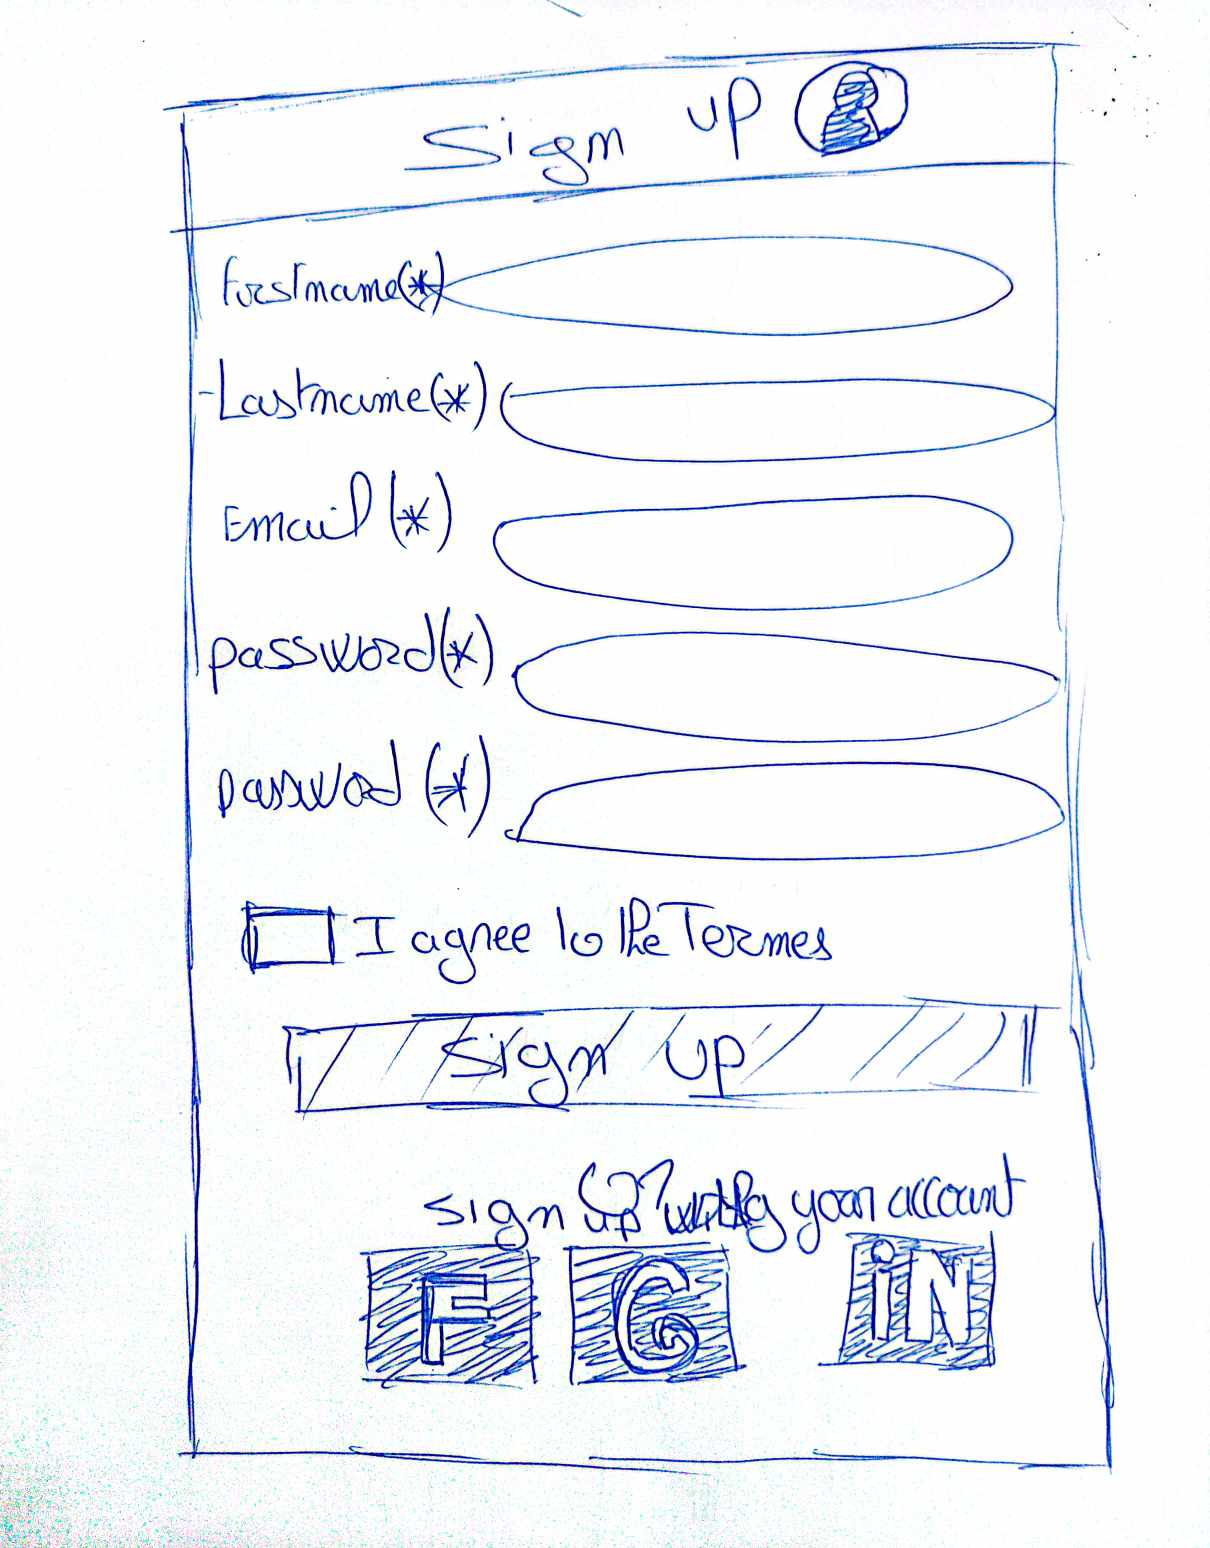 Sign up
firstname(*)
Lastname(*)
Email (*)
password(*)
password (*)
I agree to the Termes
Sign up
sign up your account
F G iN